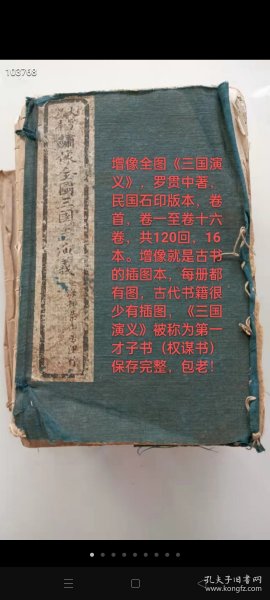 103768
增像全图《三国演
义》，罗贯中著，
民国石印版本，卷
首，卷一至卷十六
卷，共120回，16
本。增像就是古书
的插图本，每册都
有图，古代书籍很
少有插图，《三国
演义》被称为第一
才子书（权谋书）
保存完整，包老！
繡像全圖三國演義
孔夫子旧书网
www.kongfz.com